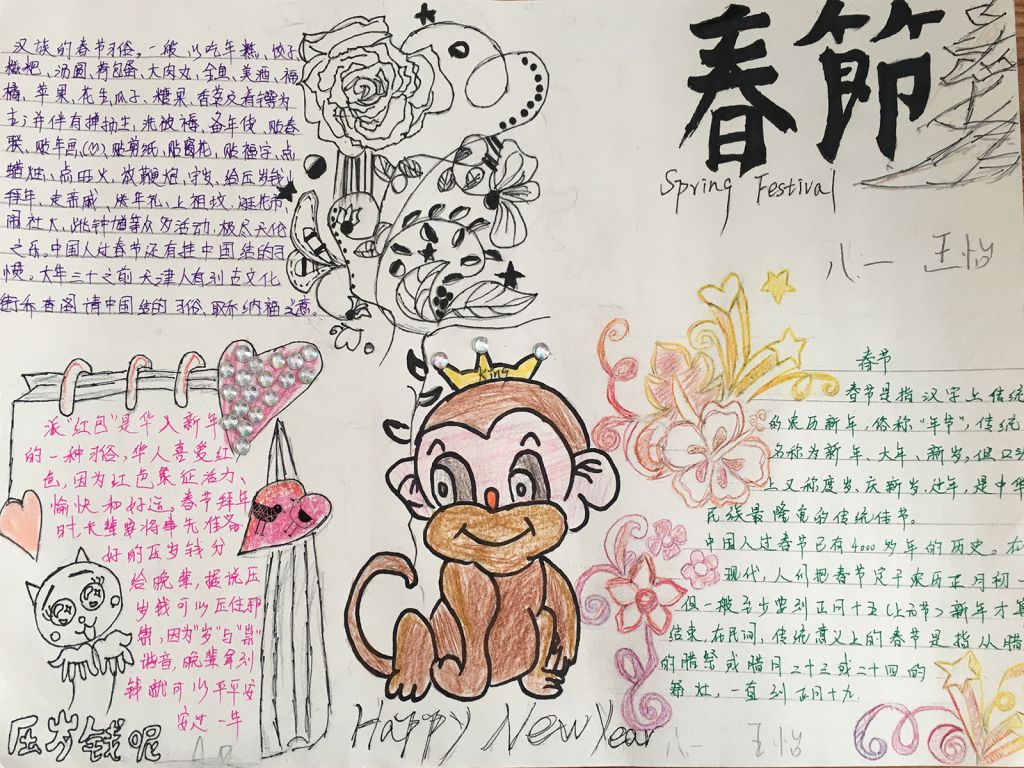 汉族的春节习俗,一般以吃年糕、饺子
糍粑、汤圆、荷包蛋、大肉丸、全鱼、美酒、福
橘、苹果、花生、瓜子、糖果、香茗及肴馔为
主;并伴有掸扬尘,洗被褥、备年货、贴春
联、贴年画、贴剪纸、贴窗花、贴福字、点
蜡烛、点旺火、放鞭炮、守岁、给压岁钱、
拜年、走亲戚、送年礼、上祖坟、逛花市、
闹社火、跳钟馗等众多活动,极尽天伦
之乐。中国人过春节还有挂中国结的习
惯。大年三十之前天津人有到古文化
街乔香阁请中国结的习俗、取乔纳福之意。
春節
Spring Festival
八一 王怡
春节
春节是指汉字上传统
的农历新年,俗称"年节",传统
名称为新年、大年、新岁,但口头
上又称度岁、庆新岁、过年,是中华
民族最隆重的传统佳节。
中国人过春节已有4000多年的历史。在
现代,人们把春节定于农历正月初一
但一般至少要到正月十五(上元节)新年才算
结束,在民间,传统意义上的春节是指从腊
的腊祭或腊月二十三或二十四的
祭灶,一直到正月十九
派"红包"是华人新年
的一种习俗,华人喜爱红
色,因为红色象征活力、
愉快和好运。春节拜年
时,长辈要将事先准备
好的压岁钱分
给晚辈,据说压
岁钱可以压住邪
祟,因为"岁"与"祟"
谐音,晚辈拿到
钱就可以平平安
安过一年
压岁钱呢
King
Happy New Year
八一 王怡